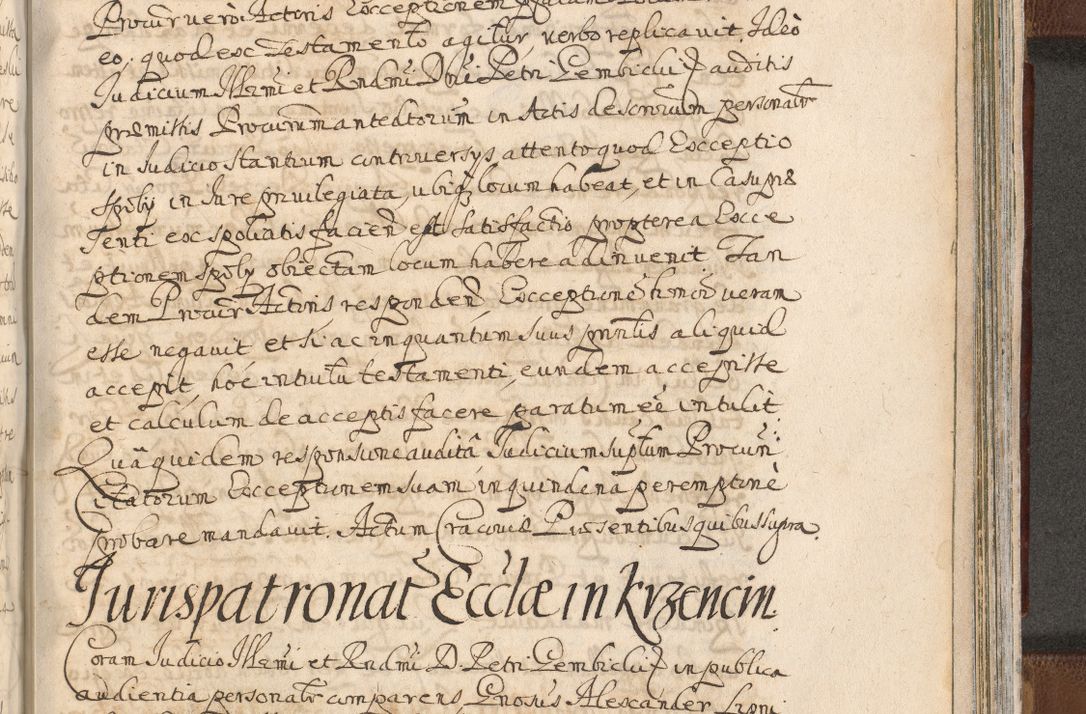 Procur vero Actoris Exceptionem
eo, quod ex Testamento agitur, verbo replicavit. Ideo
Iudicium Illrmi et Rndmi Dni Petri Gembicki auditis
premissis Procuru manteatorum in Actis descrorum personalr
in Iudicio stantium controversys, attento quod Exceptio
spoly in Iure privilegiata, ubiq locum habeat, et in Casu præ
senti ex spoliatis facien est satisfactio propterea Exce
ptionem spoly obiectam locum habere adinvenit Tan
dem Procur Actoris responden Exceptione hmoi veram
esse negavit et si ac inquantum suus prnlis aliquid
accepit, hoc intuitu testamenti, eundem accepisse
et calculum de acceptis facere paratum eē intulit
Quā quidem responsione auditâ Iudicium suptum Procuri
Citatorum Exceptionem suam in quindena peremptorie
probare mandavit. Actum Cracoviæ Præsentibus quibus supra.
Iurispatronat Ecclæ in Krzencin.
Coram Iudicio Illrmi et Rndmi D. Petri Gembicki in publica
audientia personalr comparens Gnosus Alexander Lipni